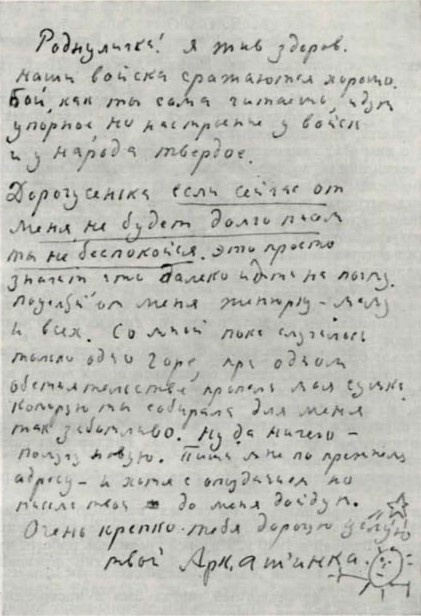 Роднуличка! я жив здоров.
наши войска сражаются хорошо.
Бои, как ты сама читаешь, идут
упорное но настроение у войск
и у народа твердое.
Дорогусенька если сейчас от
меня не будет долго писем
ты не беспокойся. это просто
значит что далеко идти на почту.
поцелуй от меня женюрку – маму
и всех. Со мной пока случилось
только одно горе, при одном
обстоятельстве пропала моя сумка
которую ты собирала для меня
так заботливо. Ну да ничего –
получу новую. Пиши мне по прежнему
адресу – и хотя с опозданием но
письма твои до меня дойдут.
Очень крепко тебя дорогую целую
твой Аркашинка.